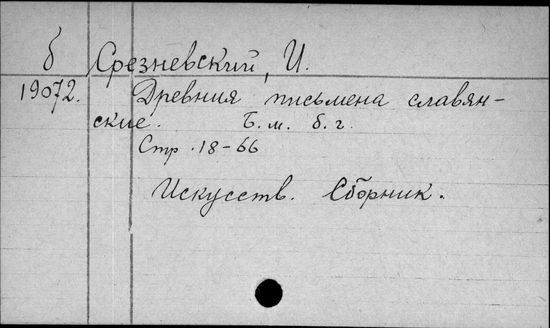 б Срезневский, И.
19072. Древния письмена славян-
ские. Б. м. б. г.
Стр. 18-66
Искусств. Сборник.